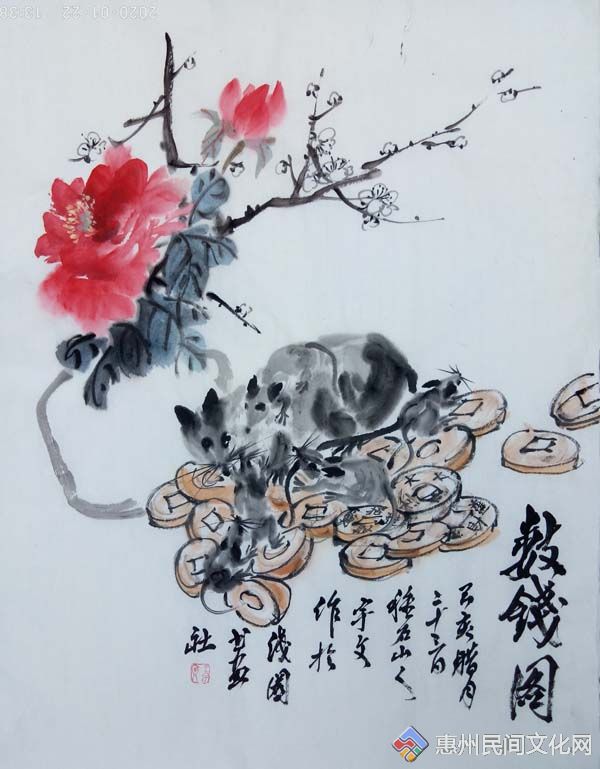 2020-01-22 13:38
数錢图
己亥腊月
二十三日
石山人
宇文
作於
书画
社
惠州民间文化网